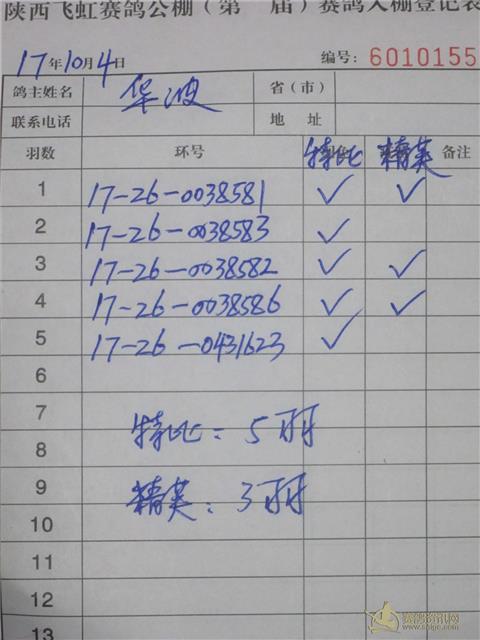 陕西飞虹赛鸽公棚（第 届）赛鸽入棚登记表
17年10月4日 编号：6010155
鸽主姓名 华波 省（市）
联系电话 地 址
羽数 环号 特比 精英 备注
1 17-26-0038581 ✓ ✓
2 17-26-0038583 ✓
3 17-26-0038582 ✓ ✓
4 17-26-0038586 ✓ ✓
5 17-26-0431623 ✓
6
7
特比：5羽
8
9
精英：3羽
10
11
12
13
赛鸽资讯网